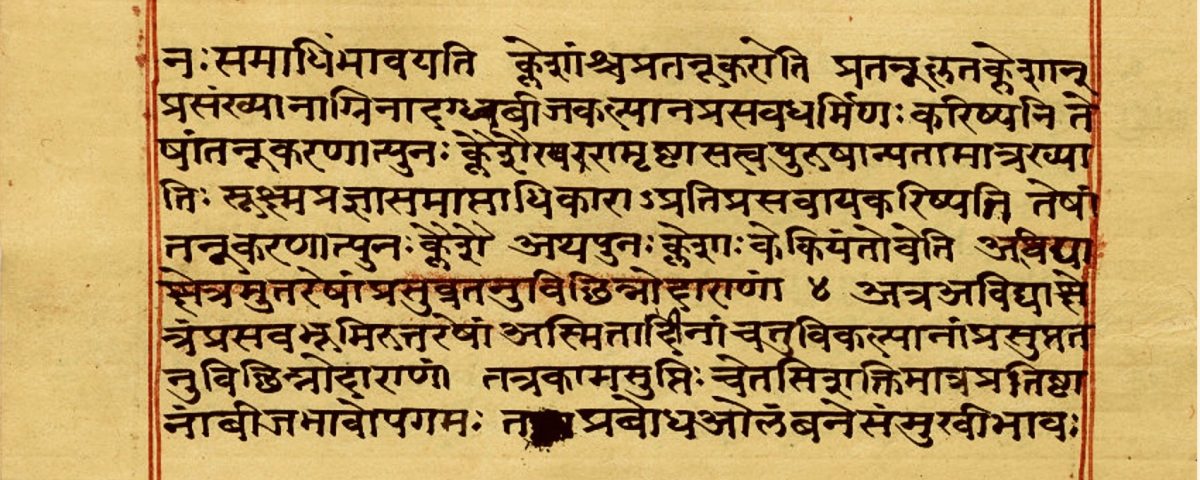 नः समाधिंभावयति क्लेशांश्चप्रतनूकरोति प्रतनूकृतक्लेशान्
प्रसंख्यानाग्निनादग्धबीजकल्पानप्रसवधर्मिणः करिष्यति ते
षांतनूकरणात्पुनः क्लेशैरपरामृष्टासत्वपुरुषान्यतामात्रख्या
तिः सूक्ष्मप्रज्ञासमाप्ताधिकाराऽप्रतिप्रसवायकरिष्यति तेषां
तनूकरणात्पुनः क्लेशै अथपुनः क्लेशाः केकियंतोवेति अविद्या
क्षेत्रमुतरेषांप्रसुप्ततनुविछिन्नोदाराणां ४ अत्रअविद्याक्षे
त्रंप्रसवभूमिरुत्तरेषां अस्मितादीनांचतुविकल्पानांप्रसुप्तत
नुविछिन्नोदाराणां तत्रकाप्रसुप्तिः चेतसिशक्तिमात्रप्रतिष्ठा
नांबीजभावोपगमः प्रबोधओलंबनेसंमुखीभावः